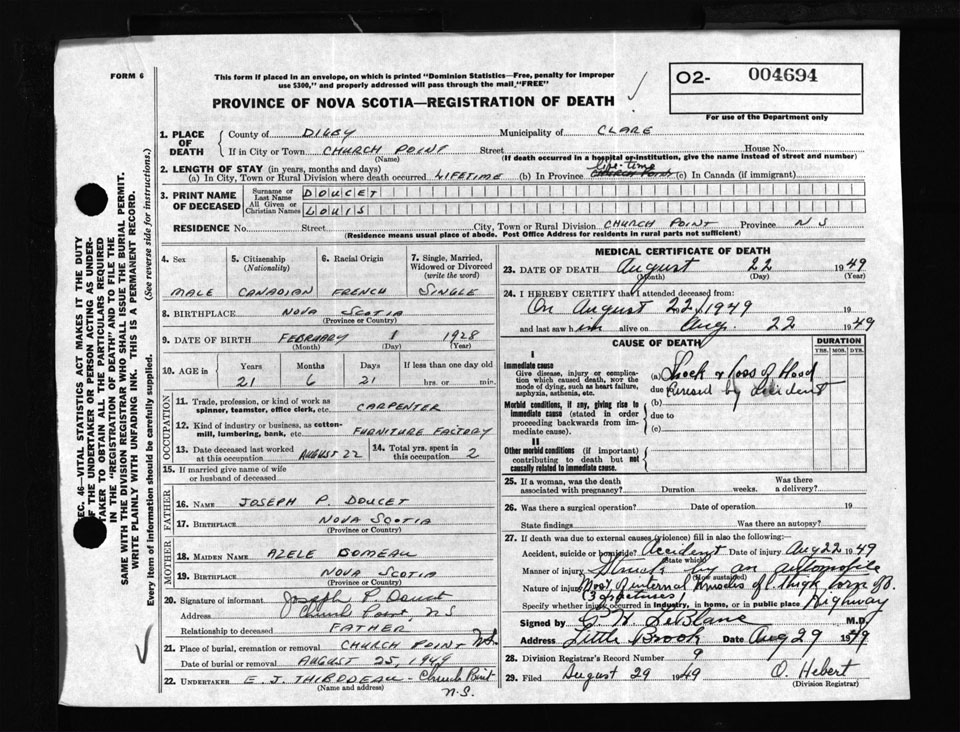 FORM 6
This form if placed in an envelope, on which is printed "Dominion Statistics—Free, penalty for improper
use $300," and properly addressed will pass through the mail "FREE"
O2- 004694
For use of the Department only
PROVINCE OF NOVA SCOTIA—REGISTRATION OF DEATH
1. PLACE OF DEATH
County of DIGBY Municipality of CLARE
If in City or Town CHURCH POINT Street House No.
(Name) (If death occurred in a hospital or institution, give the name instead of street and number)
2. LENGTH OF STAY (in years, months and days) life-time
(a) In City, Town or Rural Division where death occurred LIFETIME (b) In Province CHURCH POINT (c) In Canada (if immigrant)
3. PRINT NAME OF DECEASED
Surname or Last Name DOUCET
All Given or Christian Names LOUIS
RESIDENCE No. Street City, Town or Rural Division CHURCH POINT Province NS
(Residence means usual place of abode. Post Office Address for residents in rural parts not sufficient)
4. Sex
MALE
5. Citizenship (Nationality)
CANADIAN
6. Racial Origin
FRENCH
7. Single, Married, Widowed or Divorced (write the word)
SINGLE
8. BIRTHPLACE NOVA SCOTIA
(Province or Country)
9. DATE OF BIRTH FEBRUARY 1 1928
(Month) (Day) (Year)
10. AGE in Years Months Days If less than one day old
21 6 21 hrs. or min.
OCCUPATION
11. Trade, profession, or kind of work as
spinner, teamster, office clerk, etc. CARPENTER
12. Kind of industry or business, as cotton-
mill, lumbering, bank, etc. FURNITURE FACTORY
13. Date deceased last worked
at this occupation AUGUST 22
14. Total yrs. spent in
this occupation 2
15. If married give name of wife
or husband of deceased
FATHER
16. NAME JOSEPH P. DOUCET
17. BIRTHPLACE NOVA SCOTIA
(Province or Country)
MOTHER
18. MAIDEN NAME AZELE COMEAU
19. BIRTHPLACE NOVA SCOTIA
(Province or Country)
20. Signature of informant Joseph P. Doucet
Address Church Point, N S
Relationship to deceased FATHER
21. Place of burial, cremation or removal CHURCH POINT N.S.
Date of burial or removal AUGUST 25, 1949
22. UNDERTAKER E. J. THIBODEAU - Church Point
(Name and address) N.S.
MEDICAL CERTIFICATE OF DEATH
23. DATE OF DEATH August 22 1949
(Month) (Day) (Year)
24. I HEREBY CERTIFY that I attended deceased from:
On August 22 1949 19
and last saw him alive on Aug. 22 1949
CAUSE OF DEATH
DURATION
YRS. MOS. DYS.
I
Immediate cause
Give disease, injury or complica-
tion which caused death, NOT the
mode of dying, such as heart failure,
asphyxia, asthenia, etc.
(a) Shock & loss of blood
due to caused by accident
Morbid conditions, if any, giving rise to
immediate cause (stated in order
proceeding backwards from im-
mediate cause).
(b)
due to
(c)
II
Other morbid conditions (if important)
contributing to death but not
causally related to immediate cause.
25. If a woman, was the death
associated with pregnancy? Duration weeks. Was there
a delivery?
26. Was there a surgical operation? Date of operation 19
State findings Was there an autopsy?
27. If death was due to external causes (violence) fill in also the following:
Accident, suicide or homicide? Accident Date of injury Aug 22 1949
(State which)
Manner of injury Struck by an automobile
(How sustained)
Nature of injury Most of internal muscles of l. thigh torn &
(3 fractures)
Specify whether injury occurred in industry, in home, or in public place Highway
Signed by LeBlanc M.D.
Address Little Brook Date Aug 29 1949
28. Division Registrar's Record Number 9
29. Filed August 29 1949 O. Hebert
(Division Registrar)
SEC. 46—VITAL STATISTICS ACT MAKES IT THE DUTY
OF THE UNDERTAKER OR PERSON ACTING AS UNDER-
TAKER TO OBTAIN ALL THE PARTICULARS REQUIRED
IN THE "REGISTRATION OF DEATH" AND TO FILE THE
SAME WITH THE DIVISION REGISTRAR WHO SHALL ISSUE THE BURIAL PERMIT.
WRITE PLAINLY WITH UNFADING INK. THIS IS A PERMANENT RECORD.
Every item of information should be carefully supplied. (See reverse side for instructions.)